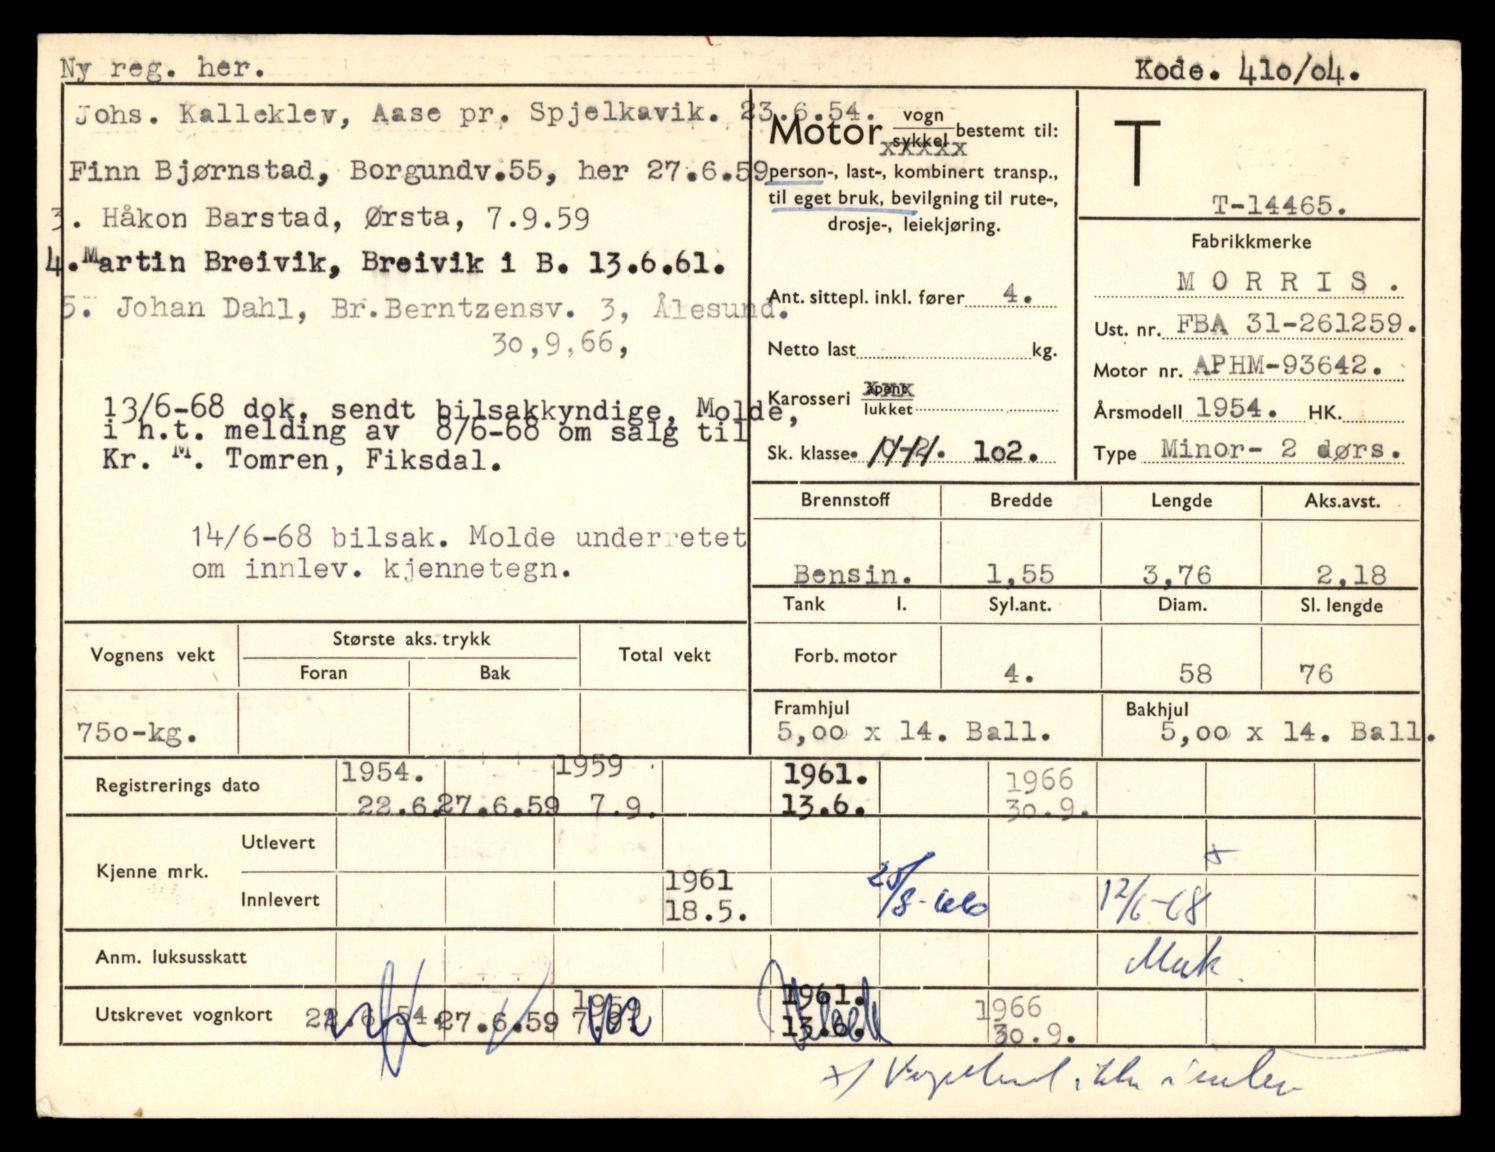 Ny reg. her.
Kode. 41o/o4.
Johs. Kalleklev, Aase pr. Spjelkavik. 23.6.54.
Finn Bjørnstad, Borgundv.55, her 27.6.59
3. Håkon Barstad, Ørsta, 7.9.59
4. Martin Breivik, Breivik i B. 13.6.61.
5. Johan Dahl, Br.Berntzensv. 3, Ålesund.
3o,9,66,
13/6-68 dok. sendt bilsakkyndige, Molde,
i h.t. melding av 8/6-68 om salg til
Kr. M. Tomren, Fiksdal.
14/6-68 bilsak. Molde underretet
om innlev. kjennetegn.
Motor vogn sykkel bestemt til:
person-, last-, kombinert transp.,
til eget bruk, bevilgning til rute-,
drosje-, leiekjøring.
Ant. sittepl. inkl. fører 4.
Netto last kg.
Karosseri åpent lukket
Sk. klasse. 1o2.
T
T-14465.
Fabrikkmerke
M O R R I S .
Ust. nr. FBA 31-261259.
Motor nr. APHM-93642.
Årsmodell 1954. HK.
Type Minor- 2 dørs.
Brennstoff Bredde Lengde Aks.avst.
Bensin. 1,55 3,76 2,18
Tank l. Syl.ant. Diam. Sl. lengde
Forb. motor 4. 58 76
Framhjul Bakhjul
5,oo x 14. Ball. 5,oo x 14. Ball.
Vognens vekt Største aks. trykk Total vekt
Foran Bak
75o-kg.
Registrerings dato 1954. 1959 1961. 1966
22.6. 27.6.59 7.9. 13.6. 3o.9.
Kjenne mrk. Utlevert
Innlevert 1961 18.5. 25/8-66 12/6-68
Anm. luksusskatt
Utskrevet vognkort 22.6.54. 27.6.59 1959 7.9. 1961. 13.6. 1966 3o.9.
x) Vognkort ikke innlev